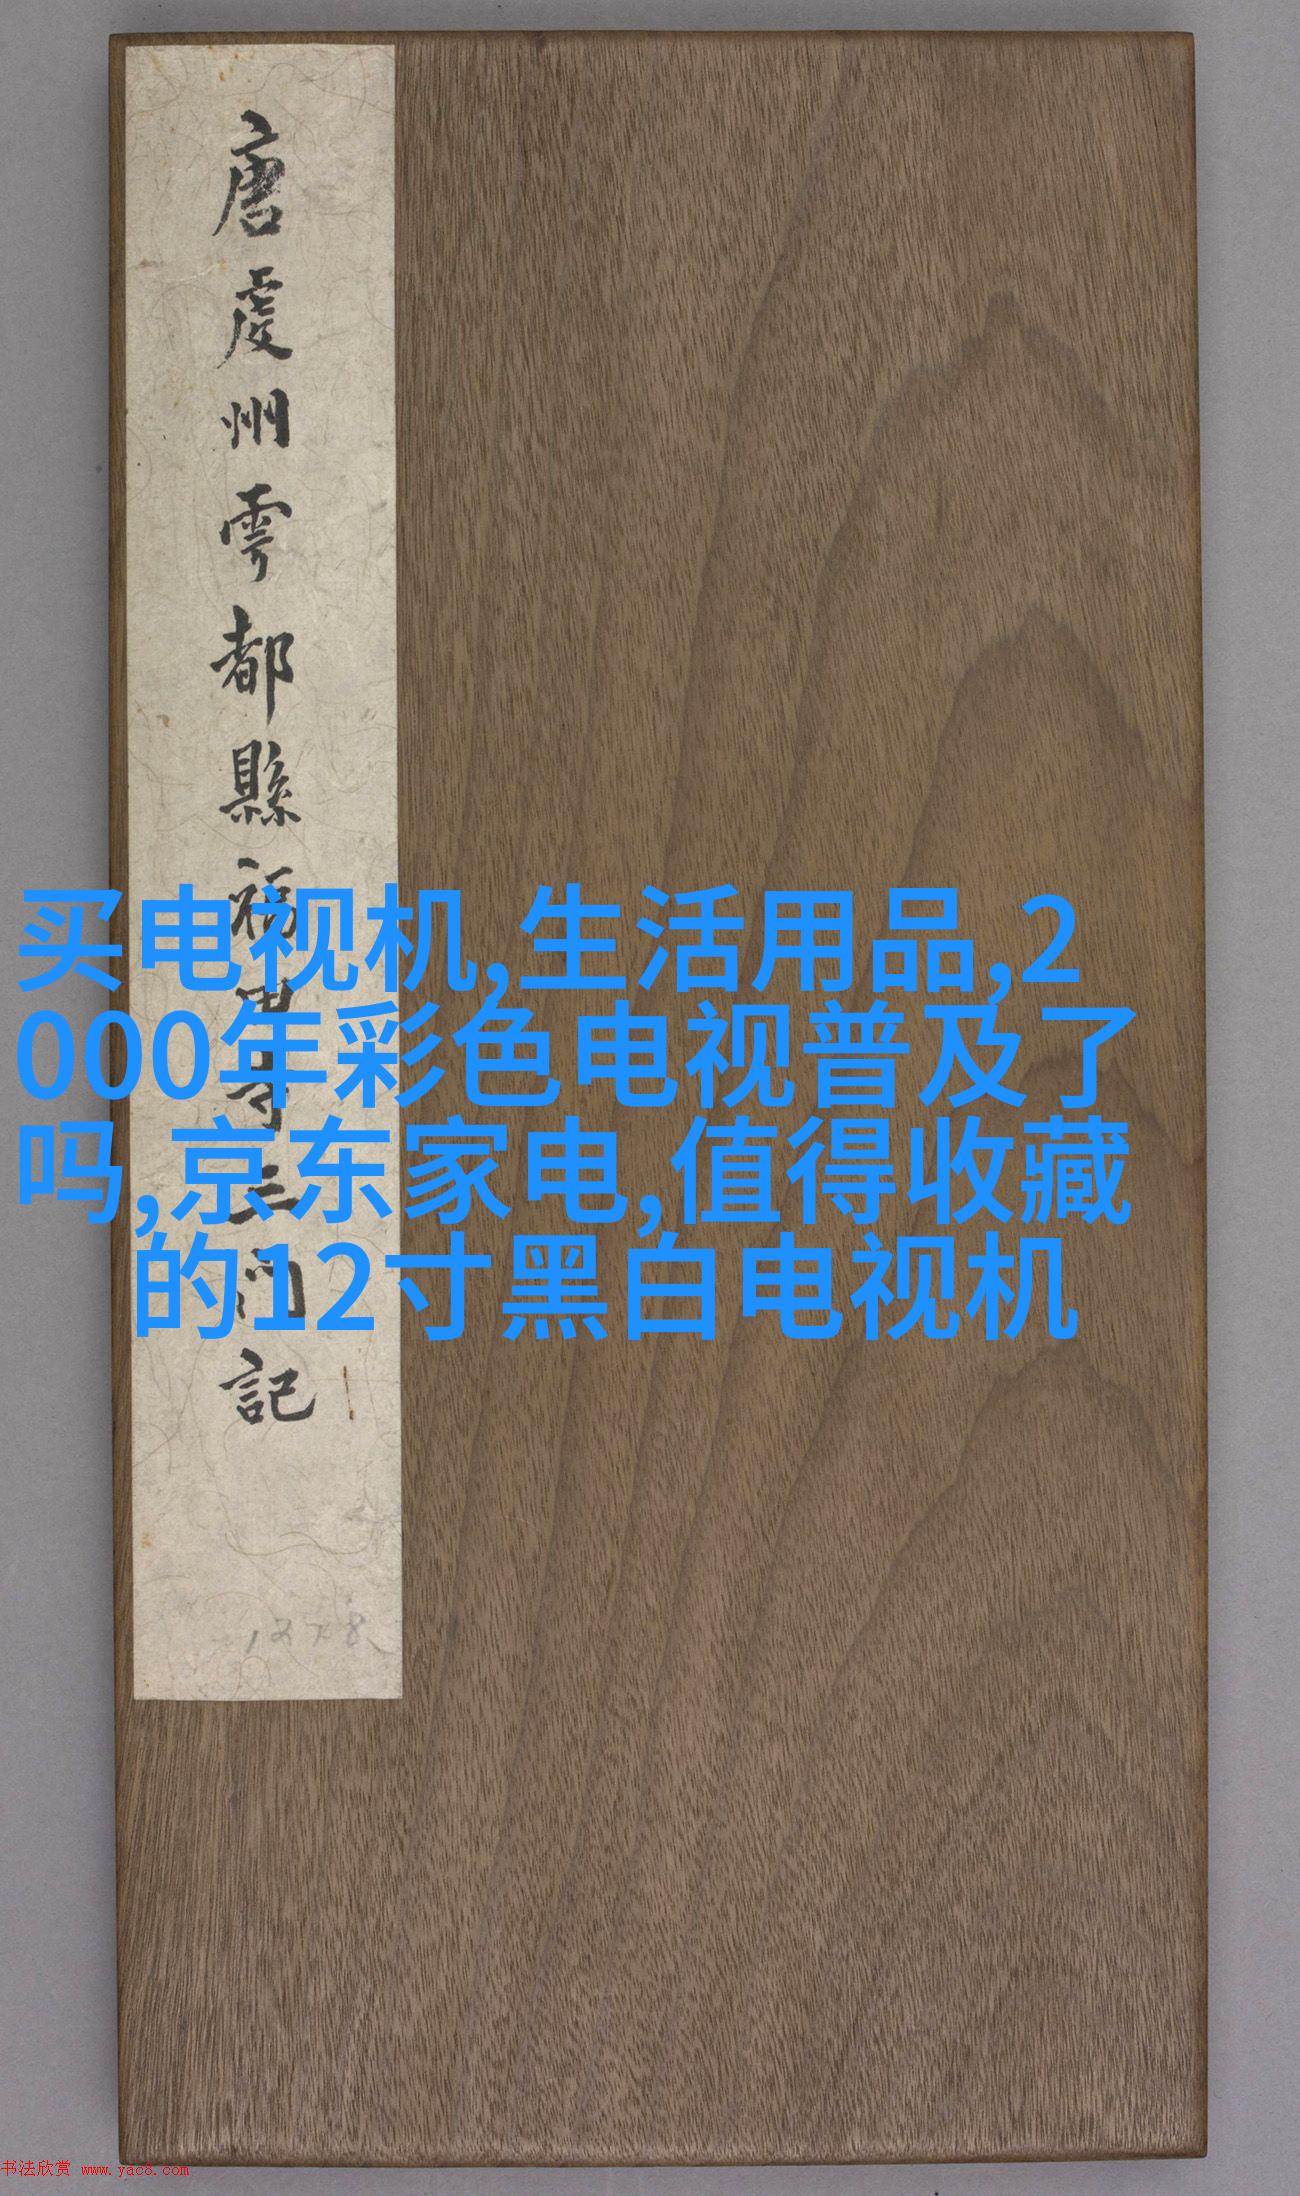 唐虔州雩都縣福田寺三門記
买电视机,生活用品,2
000年彩色电视普及了
吗,京东家电,值得收藏
的12寸黑白电视机
书法欣赏 www.yac8.com